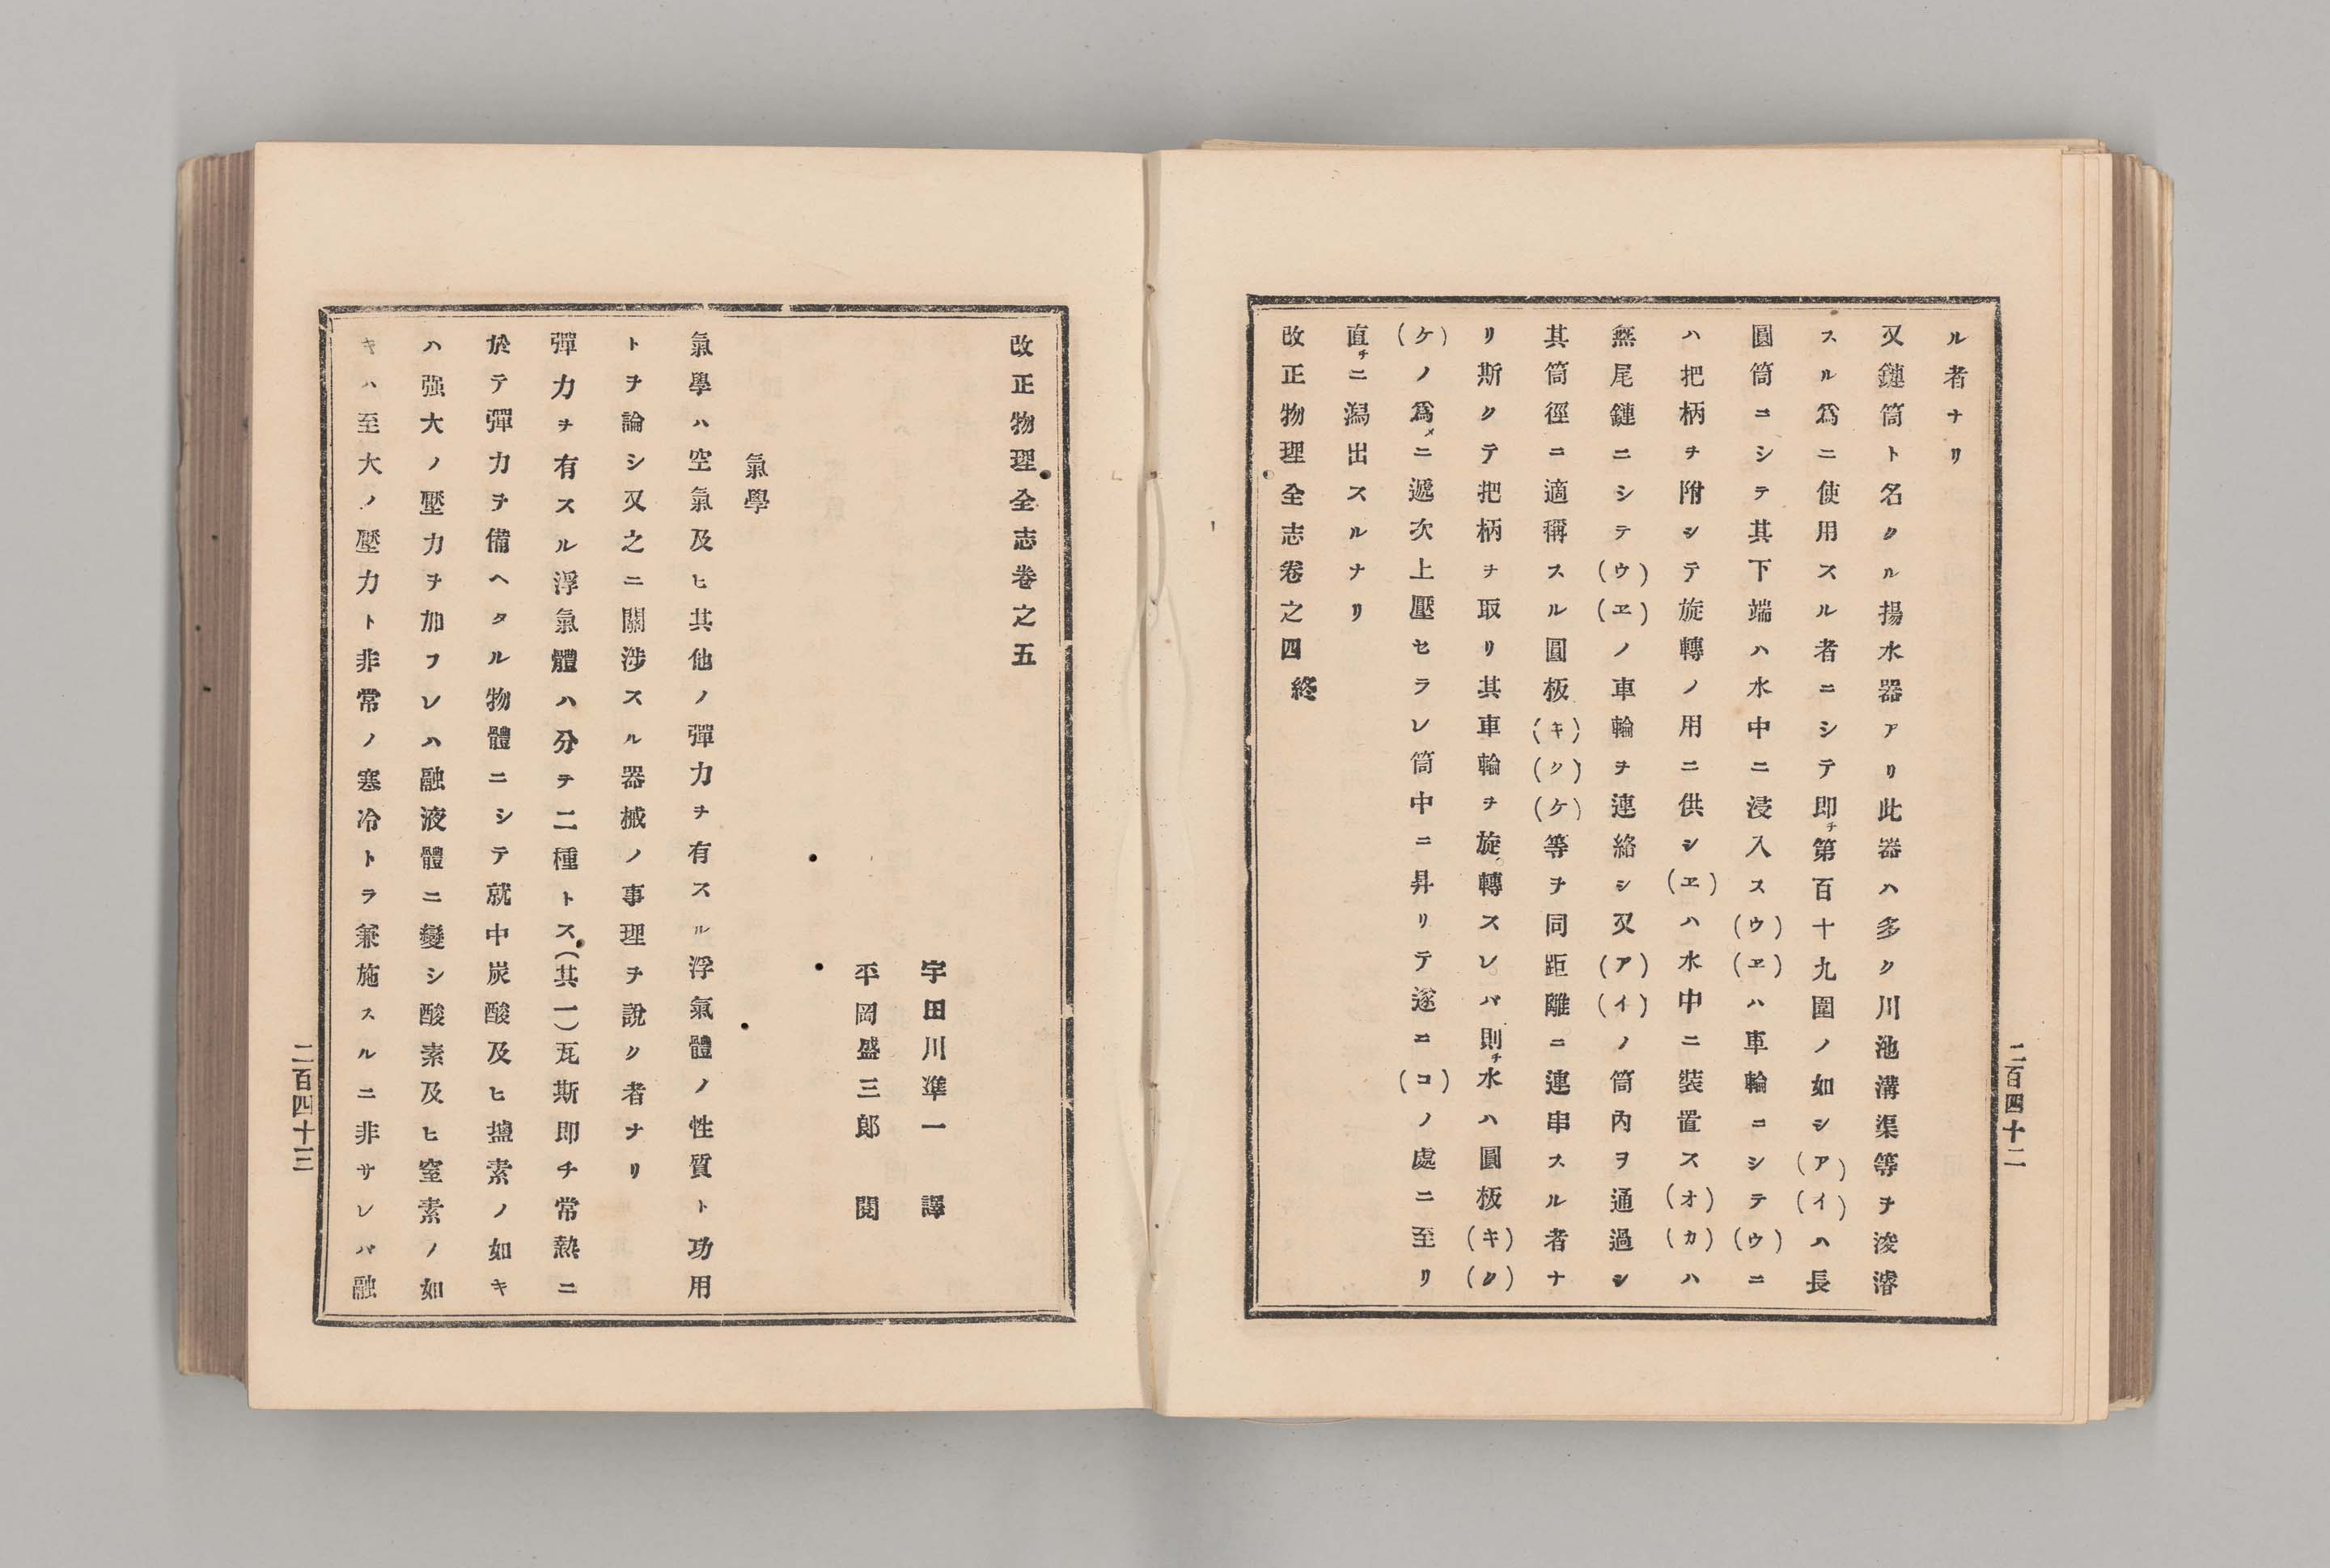 ル者ナリ
又鏈筒ト名クル揚水器アリ此器ハ多ク川池溝渠等ヲ浚濬
スル爲ニ使用スル者ニシテ即チ第百十九圍ノ如シ(ア)(イ)ハ長
圓筒ニシテ其下端ハ水中ニ浸入ス(ウ)(ヱ)ハ車輪ニシテ(ウ)ニ
ハ把柄チ附シテ旋轉ノ用ニ供シ(ヱ)ハ水中ニ裝置ス(オ)(カ)ハ
無尾鏈ニシテ(ウ)(ヱ)ノ車輪ヲ連絡シ又(ア)(イ)ノ筒內ヲ通過シ
其筒徑ニ適稱スル圓板(キ)(ク)(ケ)等ヲ同距離ニ連串スル者ナ
リ斯クテ把柄チ取リ其車輪ヲ旋轉スレバ則チ水ハ圓板(キ)(ク)
(ケ)ノ爲メニ遞次上壓セラレ筒中ニ昇リテ遂ニ(コ)ノ處ニ至リ
直チニ瀉出スルナリ
改正物理全志卷之四終
二百四十二
改正物理全志卷之五
宇田川準一 譯
平岡盛三郎 閱
氣學
氣學ハ空氣及ヒ其他ノ彈力チ有スル浮氣體ノ性質ト功用
トヲ論シ又之ニ關涉スル器械ノ事理ヲ說ク者ナリ
彈力チ有スル浮氣體ハ分テ二種トス(其一)瓦斯即チ常熱ニ
於テ彈力ヲ備ヘタル物體ニシテ就中炭酸及ヒ鹽素ノ如キ
ハ强大ノ壓力ヲ加フレハ融液體ニ變シ酸素及ヒ窒素ノ如
キハ至大ノ壓力ト非常ノ寒冷トヲ兼施スルニ非サレバ融
二百四十三